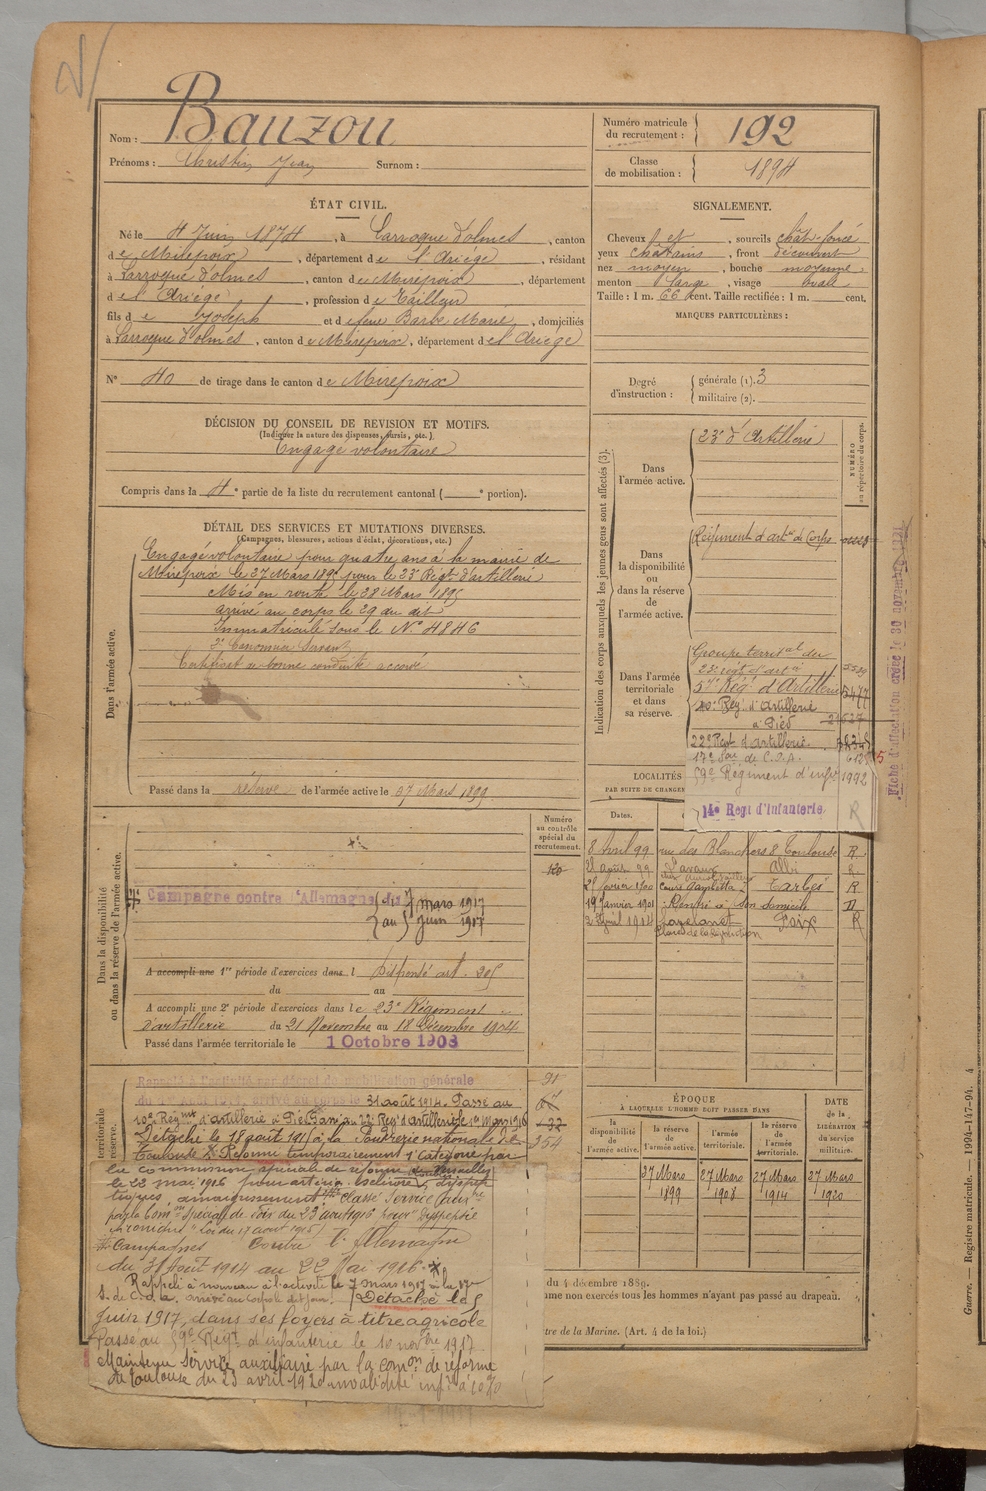 Nom : Bauzou
Prénoms : Christin Jean Surnom :
Numéro matricule du recrutement : 192
Classe de mobilisation : 1894
ÉTAT CIVIL.
Né le 4 Juin 1874, à Larroque d'olmes, canton
de Mirepoix, département de l'Ariége, résidant
à Larroque d'olmes, canton de Mirepoix, département
de l'Ariége, profession de Tailleur
fils de Joseph et de feue Barbe Marie, domiciliés
à Larroque d'olmes, canton de Mirepoix, département de l'Ariége
N° 40 de tirage dans le canton de Mirepoix
SIGNALEMENT.
Cheveux et, sourcils chât-foncé
yeux chatains, front découvert
nez moyen, bouche moyenne
menton large, visage ovale
Taille : 1 m. 66 cent. Taille rectifiée : 1 m. cent.
MARQUES PARTICULIÈRES :
Degré d'instruction : générale (1). 3
militaire (2).
DÉCISION DU CONSEIL DE REVISION ET MOTIFS.
(Indiquer la nature des dispenses, sursis, etc.)
Engagé volontaire
Compris dans la 4e partie de la liste du recrutement cantonal ( e portion).
DÉTAIL DES SERVICES ET MUTATIONS DIVERSES.
(Campagnes, blessures, actions d'éclat, décorations, etc.)
Dans l'armée active.
Engagé volontaire pour quatre ans à la mairie de
Mirepoix le 27 Mars 1895 pour le 23e Régt d'artillerie
Mis en route le 28 Mars 1895
arrivé au corps le 29 du dit
Immatriculé sous le N° 4846
2e Canonnier Servant
Certificat de bonne conduite accordé
Passé dans la réserve de l'armée active le 27 Mars 1899
Indication des corps auxquels les jeunes gens sont affectés (3).
NUMÉRO au répertoire du corps.
Dans l'armée active.
23e d'Artillerie
Dans la disponibilité ou dans la réserve de l'armée active.
Régiment d'artie de Corps
Dans l'armée territoriale et dans sa réserve.
Groupe territal du
23e régt d'artie 5529
57e Rég. d'Artillerie 5477
10e Rég. d'Artillerie
à Pied
22e Régt d'artillerie
17e Son de C.O.A.
59e Régiment d'infie 1992
14e Regt d'Infanterie R
Fiche d'affectation créée le 30 novembre 1921
LOCALITÉS
PAR SUITE DE CHANGE
Dates.
8 Avril 99 rue des Blanchers 8 Toulouse R
21 août 99 Albi R
25 février 1900 Cours Gambetta 2 Tarbes R
19 Janvier 1901 Rentré à son domicile D
2 Avril 1914 Lavelanet Foix R
Place de la Révolution
Numéro au contrôle spécial du recrutement.
120
Dans la disponibilité ou dans la réserve de l'armée active.
Campagne contre l'Allemagne du 7 mars 1917
au 5 Juin 1917
A accompli une 1re période d'exercices dans l Dispensé art. 205
du au
A accompli une 2e période d'exercices dans le 23e Régiment
d'artillerie du 21 Novembre au 18 Décembre 1904
Passé dans l'armée territoriale le 1 Octobre 1908
territoriale
réserve.
Rappelé à l'activité par décret de mobilisation générale
du 1er Août 1914, arrivé au corps le 31 août 1914. Passé au
10e Régmt d'artillerie à Pied. Passé au 22e Rég d'artillerie le 1er Mars 1916
Détaché le 15 août 1915 à la Poudrerie nationale de
Toulouse. Réformé temporairement 1e catégorie par
la commission spéciale de réforme de Versailles
le 22 mai 1916 pour artério sclérose, dyspep
amaigrissement Classé Service Auxre
par la Comon spéciale de Foix du 23 août 1916 pour "dyspepsie
chronique" Loi du 17 août 1915
Campagnes Contre l'Allemagne
du 31 Août 1914 au 22 Mai 1916
Rappelé à nouveau à l'activité le 7 mars 1917 à la 17e
S. de C.O.A. arrivé au Corps le dit jour. Détaché le 5
Juin 1917, dans ses foyers à titre agricole
Passé au 59e Régt d'infanterie le 10 novbre 1917
Maintenu Service auxiliaire par la comon de réforme
de Toulouse du 23 avril 1920 invalidité infre à 10%
91
354
ÉPOQUE
À LAQUELLE L'HOMME DOIT PASSER DANS
DATE de la LIBÉRATION du service militaire.
la disponibilité de l'armée active.
la réserve de l'armée active.
l'armée territoriale.
la réserve de l'armée territoriale.
27 Mars 1899
27 Mars 1908
27 Mars 1914
27 Mars 1920
du 4 décembre 1889.
mme non exercés tous les hommes n'ayant pas passé au drapeau.
tre de la Marine. (Art. 4 de la loi.)
Guerre. — Registre matricule. — 1994-147-94. 4